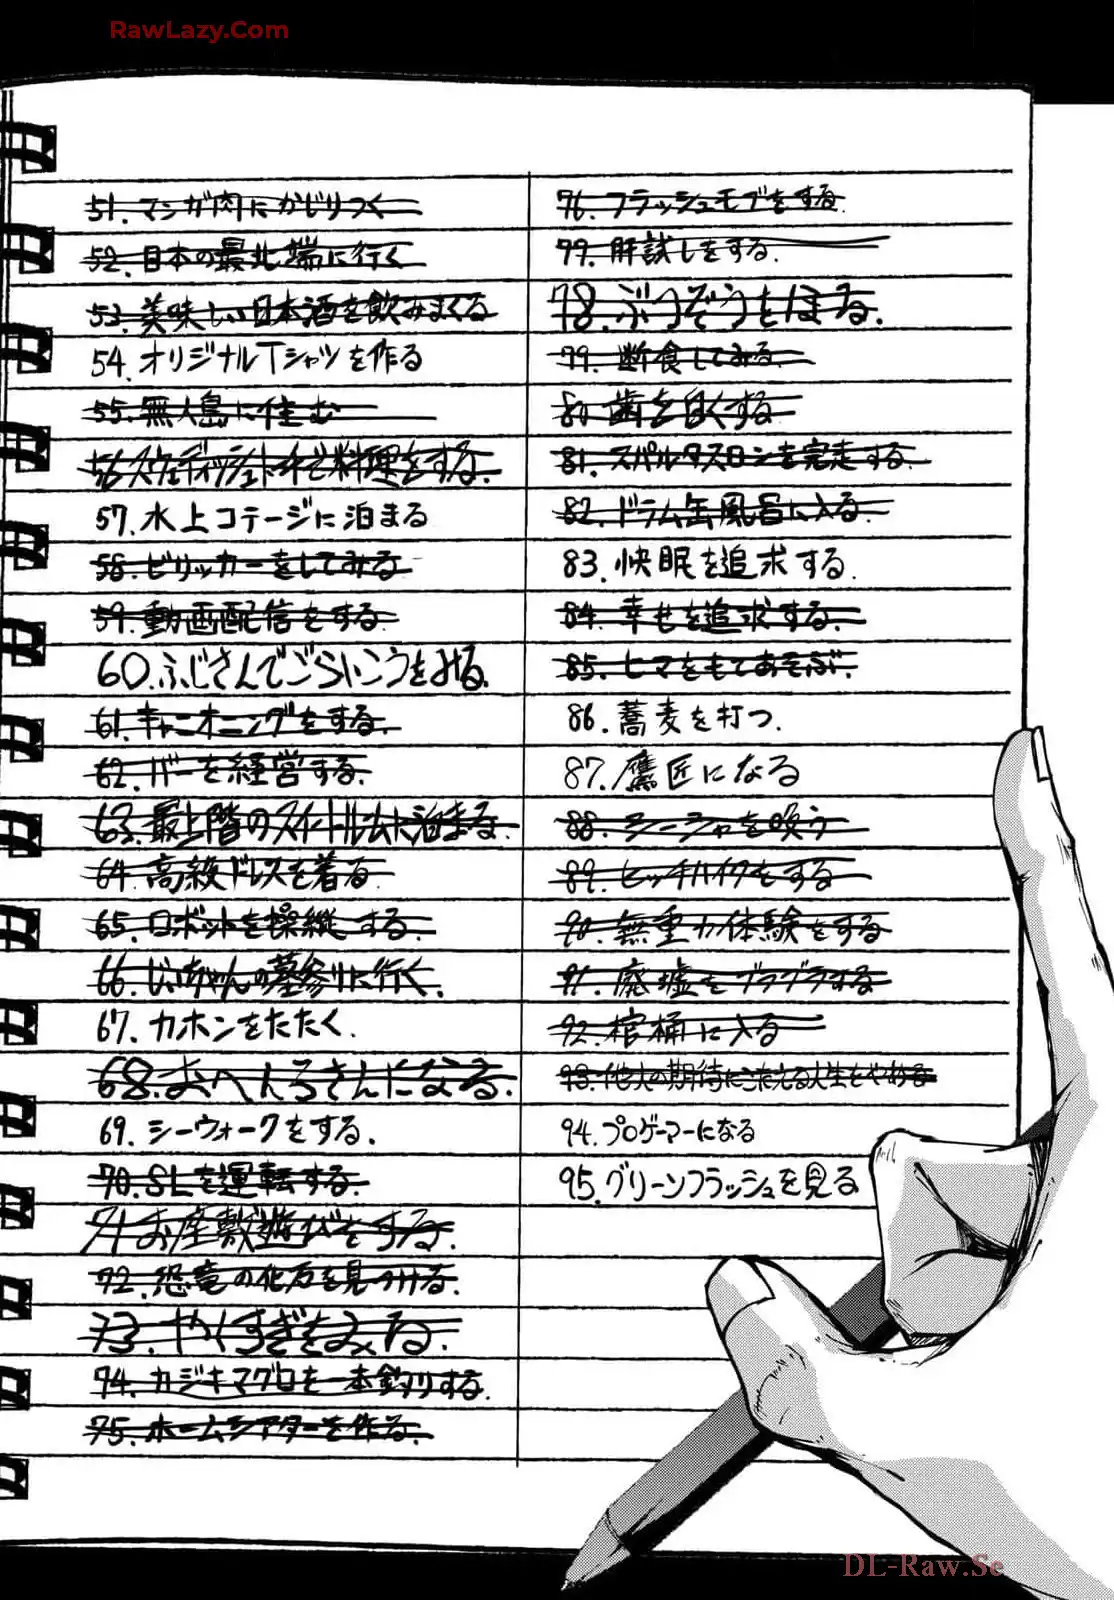 RawLazy.Com
51. マンガ肉にかじりつく
52. 日本の最北端に行く
53. 美味しい日本酒を飲みまくる
54. オリジナルTシャツを作る
55. 無人島に住む
56. スウェディッシュトーチで料理をする.
57. 水上コテージに泊まる
58. ビリッカーをしてみる
59. 動画配信をする.
60. ふじさんでごらいこうをみる.
61. キャニオニングをする.
62. バーを経営する.
63. 最上階のスイートルームに泊まる.
64. 高級ドレスを着る.
65. ロボットを操縦する.
66. じいちゃんの墓参りに行く.
67. カホンをたたく.
68. おへんろさんになる.
69. シーウォークをする.
70. SLを運転する.
71. お座敷遊びをする.
72. 恐竜の化石を見つける.
73. やくすぎをみる.
74. カジキマグロを一本釣りする.
75. ホームシアターを作る.
76. フラッシュモブをする.
77. 肝試しをする.
78. ぶつぞうをほる.
79. 断食してみる.
80. 歯を白くする
81. スパルタスロンを完走する.
82. ドラム缶風呂に入る.
83. 快眠を追求する.
84. 幸せを追求する.
85. ヒマをもてあそぶ.
86. 蕎麦を打つ.
87. 鷹匠になる
88. シーシャを吸う
89. ヒッチハイクをする
90. 無重力体験をする
91. 廃墟をブラブラする
92. 棺桶に入る
93. 他人の期待にこたえる人生をやめる
94. プロゲーマーになる
95. グリーンフラッシュを見る
DL-Raw.Se